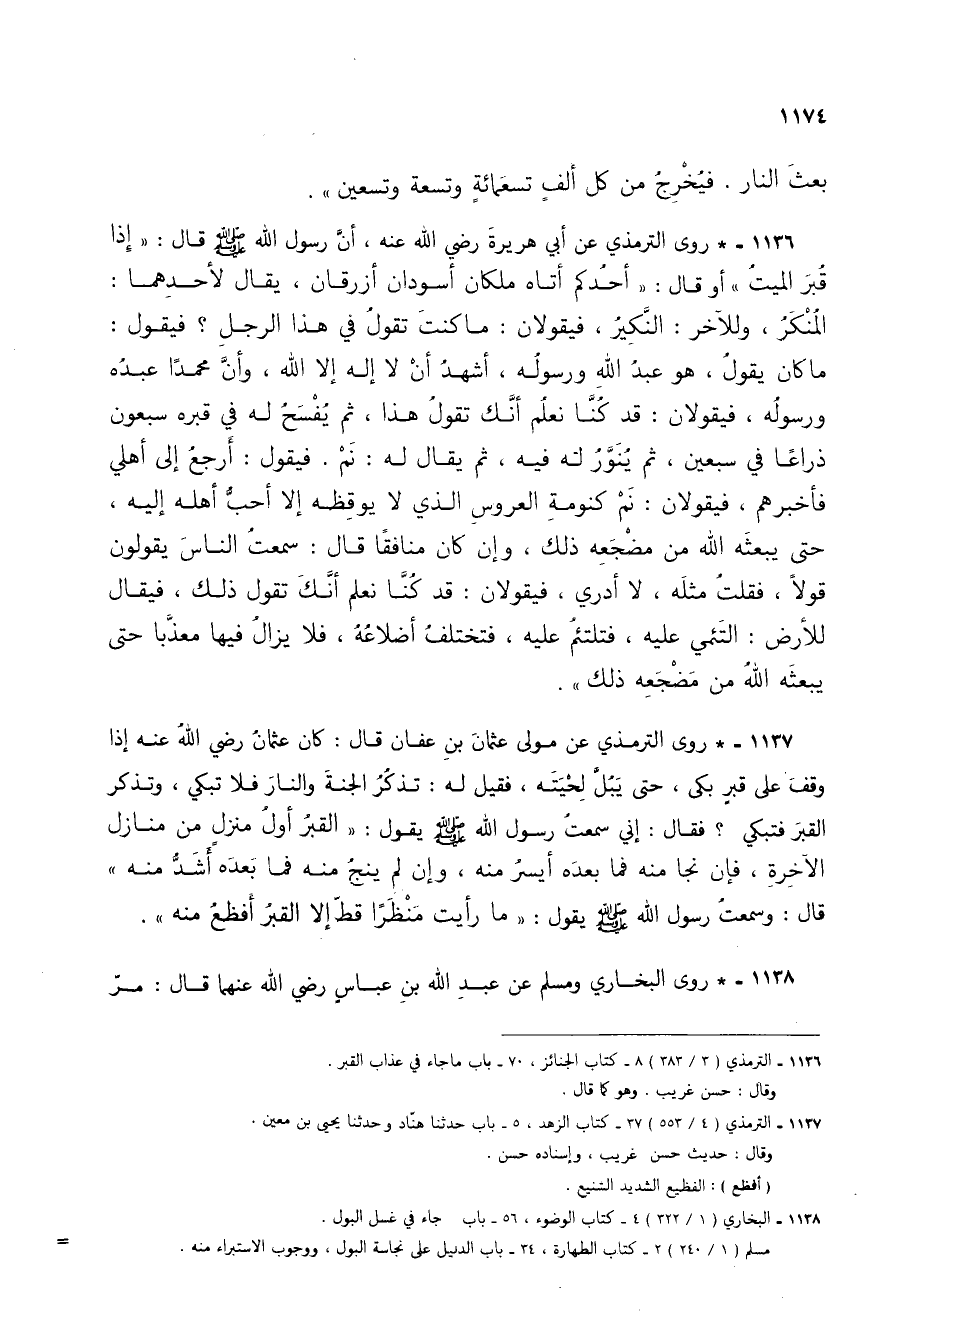 ١١٧٤
بعثَ النار . فيُخْرِجُ من كل ألفٍ تسعمائةٍ وتسعة وتسعين » .
١١٣٦ - * روى الترمذي عن أبي هريرةَ رضي الله عنه ، أنَّ رسول الله ﷺ قال : « إذا
قُبرَ الميتُ » أو قال : « أحدُكم أتاه ملكان أسودان أزرقان ، يقال لأحدهما :
المُنْكَرُ ، وللآخر : النَّكيرُ ، فيقولان : ماكنتَ تقولُ في هذا الرجل ؟ فيقول :
ماكان يقولُ ، هو عبدُ اللهِ ورسولُه ، أشهدُ أنْ لا إله إلا الله ، وأنَّ محمدًا عبدُه
ورسولُه ، فيقولان : قد كُنَّا نعلَم أنَّك تقولُ هذا ، ثم يُفْسَحُ له في قبره سبعون
ذراعًا في سبعين ، ثم يُنَوَّرُ له فيه ، ثم يقال له : نَمْ . فيقول : أَرجعُ إلى أهلي
فأخبرهم ، فيقولان : نَمْ كنومةِ العروس الذي لا يوقظه إلا أحبُّ أهله إليه ،
حتى يبعثَه الله من مضْجَعِه ذلك ، وإن كان منافقًا قال : سمعتُ الناسَ يقولون
قولاً ، فقلتُ مثلَه ، لا أدري ، فيقولان : قد كُنَّا نعلم أنَّكَ تقول ذلك ، فيقال
للأرض : التَئمي عليه ، فتلتئمُ عليه ، فتختلفُ أضلاعُهُ ، فلا يزالُ فيها معذَّبا حتى
يبعثَه اللهُ من مَضْجَعِه ذلك » .
١١٣٧ - * روى الترمذي عن مولى عثمانَ بنِ عفان قال : كان عثمانُ رضي اللهُ عنه إذا
وقفَ على قبرٍ بكى ، حتى يَبُلَّ لِحْيَتَه ، فقيل له : تذكُرُ الجنةَ والنارَ فلا تبكي ، وتذكر
القبرَ فتبكي ؟ فقال : إني سمعتُ رسول الله ﷺ يقول : « القبرُ أولُ منزلٍ من منازل
الآخرةِ ، فإن نجا منه فما بعدَه أيسرُ منه ، وإن لم ينجُ منه فما بَعدَه أَشدُّ منه »
قال : وسمعتُ رسول الله ﷺ يقول : « ما رأيت مَنْظَرًا قطّ إلا القبرُ أفظعُ منه » .
١١٣٨ - * روى البخاري ومسلم عن عبدِ الله بنِ عباسٍ رضي الله عنهما قال : مرّ
١١٣٦ - الترمذي ( ٣ / ٣٨٣ ) ٨ - كتاب الجنائز ، ٧٠ - باب ماجاء في عذاب القبر .
وقال : حسن غريب . وهو كما قال .
١١٣٧ - الترمذي ( ٤ / ٥٥٣ ) ٣٧ - كتاب الزهد ، ٥ - باب حدثنا هنّاد وحدثنا يحيى بن معين .
وقال : حديث حسن غريب ، وإسناده حسن .
( أفظع ) : الفظيع الشديد الشنيع .
١١٣٨ - البخاري ( ١ / ٣٢٢ ) ٤ - كتاب الوضوء ، ٥٦ - باب جاء في غسل البول .
مسلم ( ١ / ٢٤٠ ) ٢ - كتاب الطهارة ، ٣٤ - باب الدليل على نجاسة البول ، ووجوب الاستبراء منه .
=